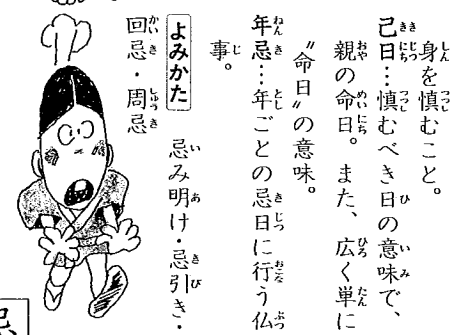 身を慎むこと。
忌日…慎むべき日の意味で、
親の命日。また、広く単に
〝命日〟の意味。
年忌…年ごとの忌日に行う仏
事。
よみかた 忌み明け・忌引き・
回忌・周忌